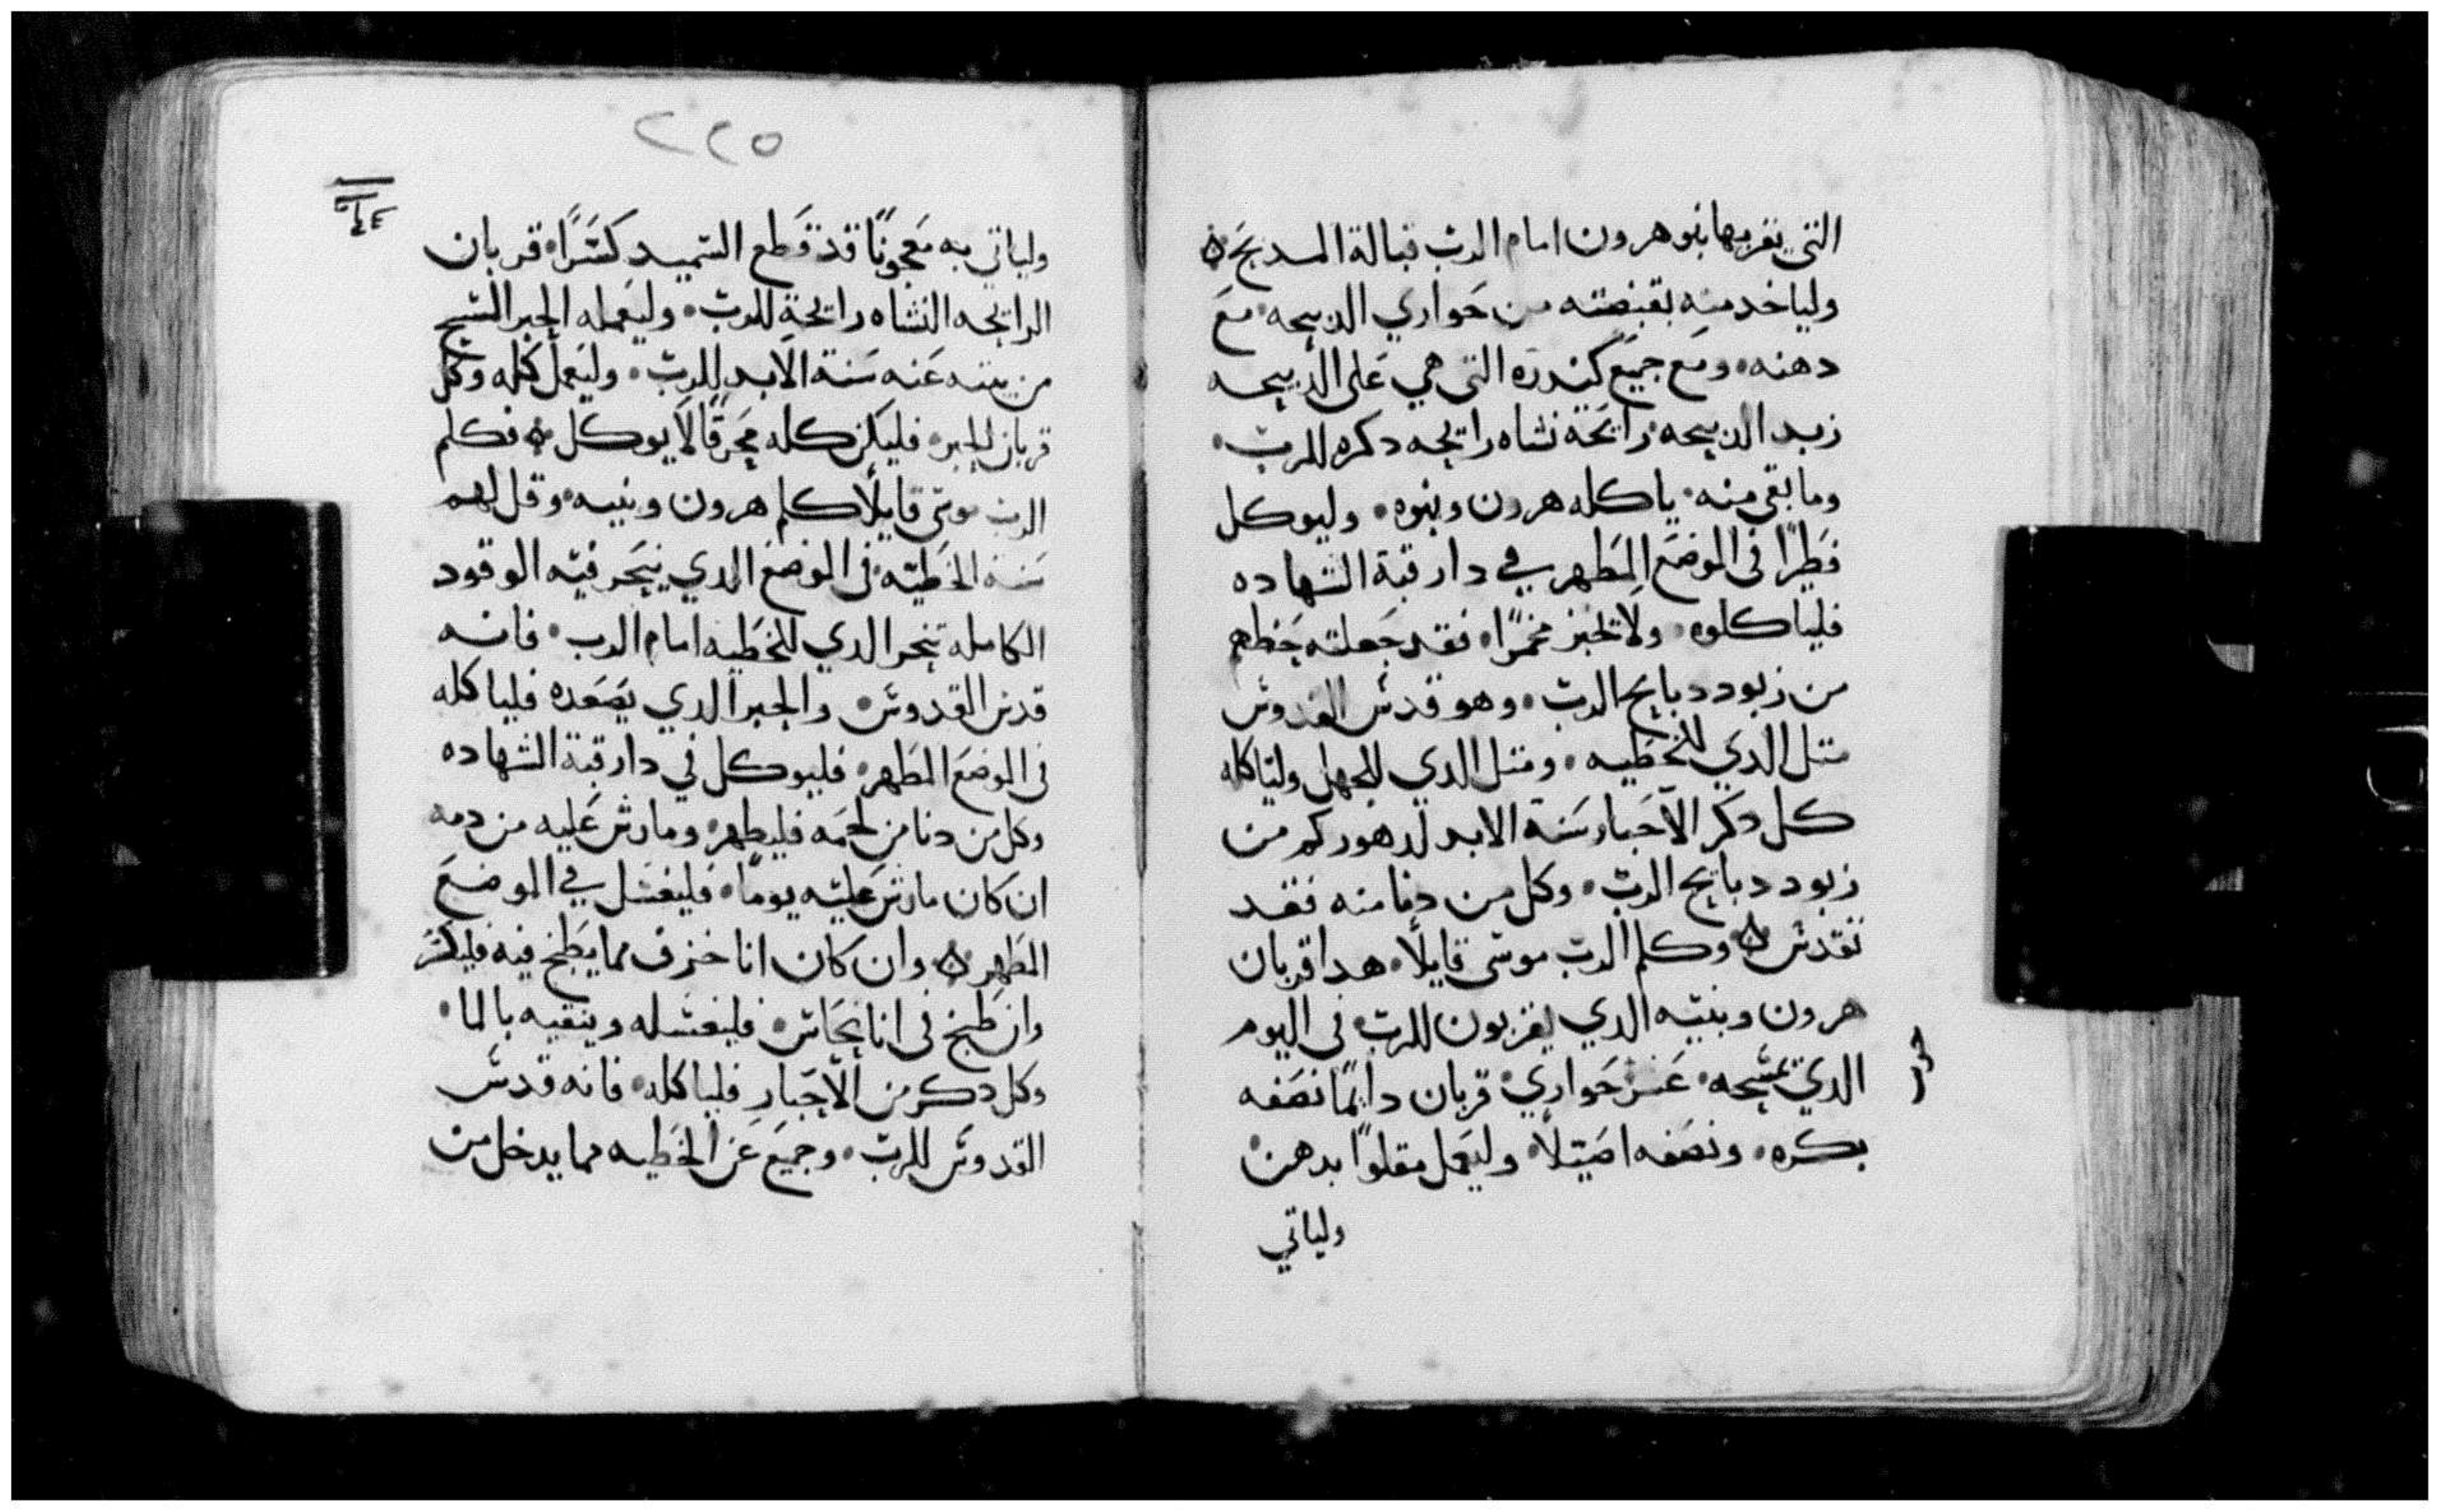 التي يقربها بنو هرون امام الرب قبالة المدبح ۞
ولياخد منه بقبضته من حواري الدبيحه مع
دهنه ومع جميع كندره التي هي على الدبيحه
زبد الدبيحه رايحة نشاه رايحه دكره للرب
وما بقي منه ياكله هرون وبنوه وليوكل
فطيرًا في الموضع المطهر في دار قبة الشهاده
فلياكلوه ولا تخبز مخمرًا فقد جعلته حظهم
من زبود دبايح الرب وهو قدس القدوس
متل الدي للخطيه ومتل الدي للجهل ولياكله
كل دكر الاحبار سنة الابد لدهوركم من
زبود دبايح الرب وكل من دنا منه فقد
تقدس ۞ وكلم الرب موسى قايلًا هدا قربان
هرون وبنيه الدي يقربون للرب في اليوم
الدي تمسحه عشر حواري قربان دايمًا نصفه
بكره ونصفه اصيلًا وليعمل مقلوًا بدهن
ولياتي
٢٢٥
ولياتي به معجونًا قد قطع السميد كسرًا قربان
الرايحه النشاه رايحة للرب وليعمله الحبر المسيح
من بنيه عنه سنة الابد للرب وليعمل كله وكل
قربان الحبر فليكن كله محرقًا لا يوكل ۞ فكلم
الرب موسى قايلًا كلم هرون وبنيه وقل لهم
سنة الخطيه في الموضع الدي ينحر فيه الوقود
الكامله تنحر الدي للخطيه امام الرب فانه
قدس القدوس والحبر الدي يصعده فلياكله
في الموضع المطهر فليوكل في دار قبة الشهاده
وكل من دنا من لحمه فليطهر وما رش عليه من دمه
ان كان ما رش عليه يومًا فليغسل في الموضع
المطهر ۞ وان كان انا خزف مما يطبخ فيه فليكسر
وان طبخ في انا نحاس فليغسله وينقيه بالما
وكل دكر من الاحبار فلياكله فانه قدس
القدوس للرب وجميع عن الخطيه مما يدخل من